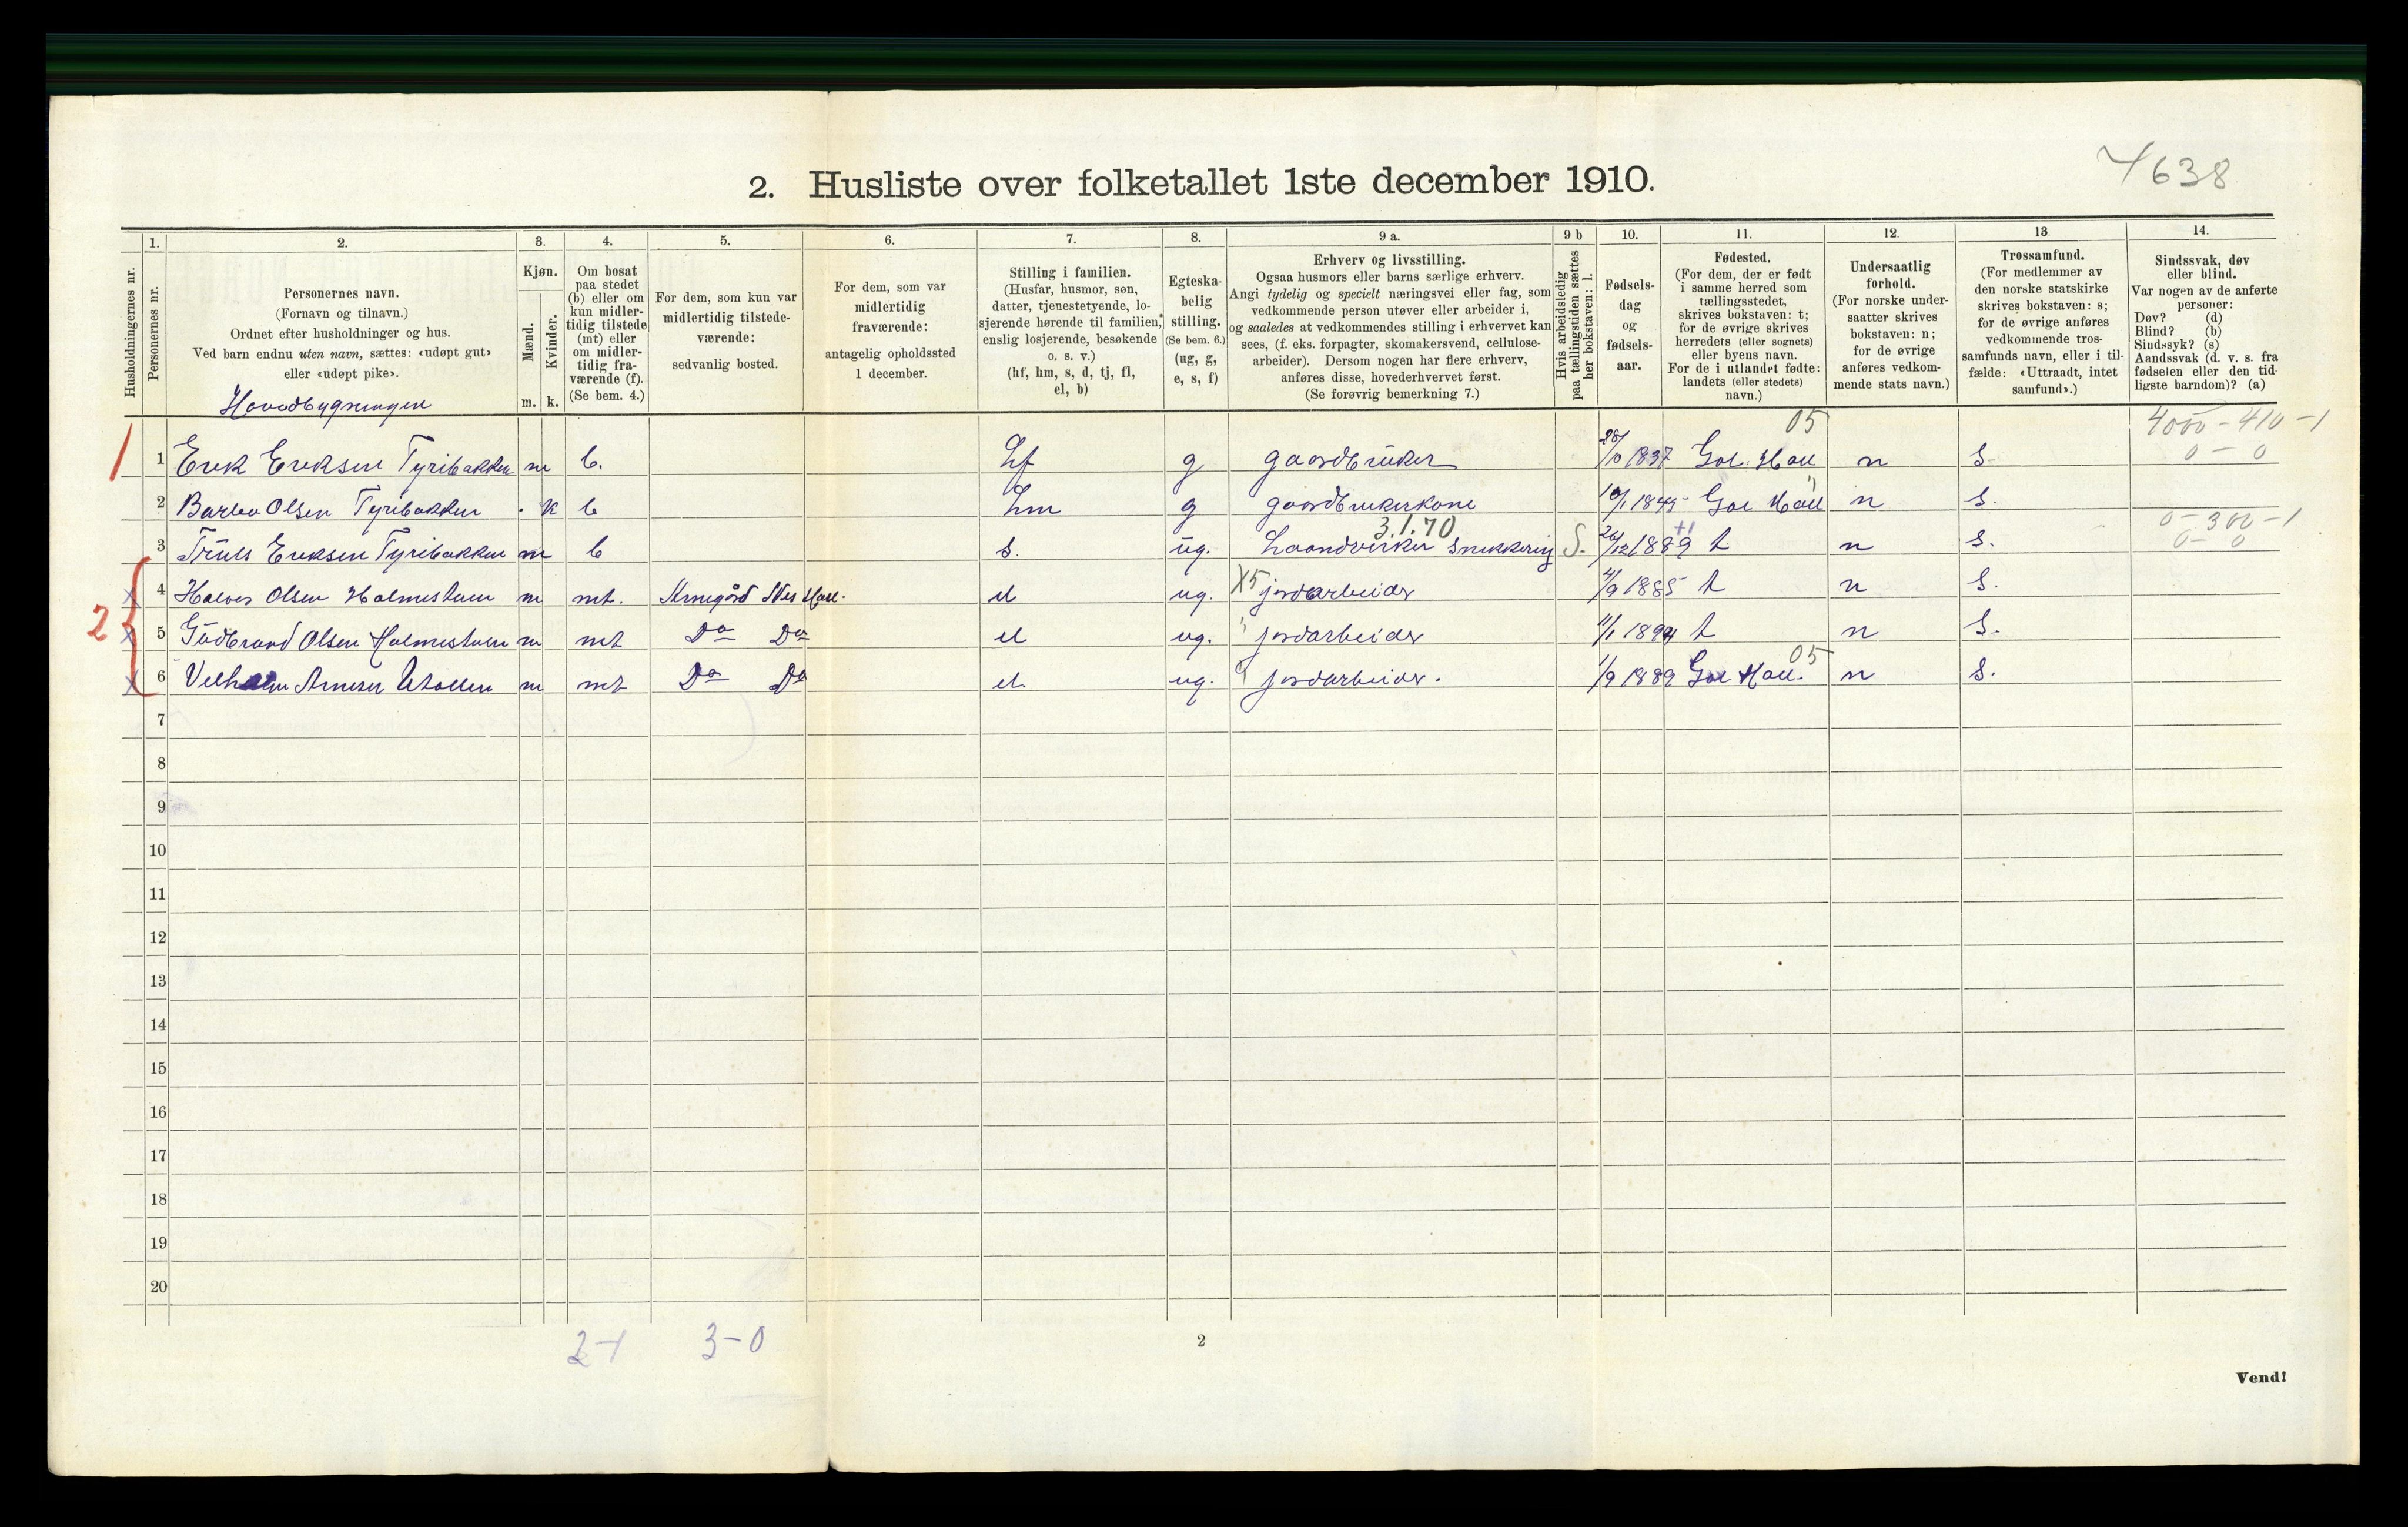 4638
2. Husliste over folketallet 1ste december 1910.
Husholdningernes nr.
1.
Personernes nr.
2.
Personernes navn.
(Fornavn og tilnavn.)
Ordnet efter husholdninger og hus.
Ved barn endnu uten navn, sættes: «udøpt gut»
eller «udøpt pike».
Hovedbygningen
3.
Kjøn.
Mænd.
Kvinder.
m. k.
4.
Om bosat
paa stedet
(b) eller om
kun midler-
tidig tilstede
(mt) eller
om midler-
tidig fra-
værende (f).
(Se bem. 4.)
5.
For dem, som kun var
midlertidig tilstede-
værende:
sedvanlig bosted.
6.
For dem, som var
midlertidig
fraværende:
antagelig opholdssted
1 december.
7.
Stilling i familien.
(Husfar, husmor, søn,
datter, tjenestetyende, lo-
sjerende hørende til familien,
enslig losjerende, besøkende
o. s. v.)
(hf, hm, s, d, tj, fl,
el, b)
8.
Egteska-
belig
stilling.
(Se bem. 6.)
(ug, g,
e, s, f)
9 a.
Erhverv og livsstilling.
Ogsaa husmors eller barns særlige erhverv.
Angi tydelig og specielt næringsvei eller fag, som
vedkommende person utøver eller arbeider i,
og saaledes at vedkommendes stilling i erhvervet kan
sees, (f. eks. forpagter, skomakersvend, cellulose-
arbeider). Dersom nogen har flere erhverv,
anføres disse, hovederhvervet først.
(Se forøvrig bemerkning 7.)
9 b
Hvis arbeidsledig
paa tællingstiden sættes
her bokstaven: l.
10.
Fødsels-
dag
og
fødsels-
aar.
11.
Fødested.
(For dem, der er født
i samme herred som
tællingsstedet,
skrives bokstaven: t;
for de øvrige skrives
herredets (eller sognets)
eller byens navn.
For de i utlandet fødte:
landets (eller stedets)
navn.)
12.
Undersaatlig
forhold.
(For norske under-
saatter skrives
bokstaven: n;
for de øvrige
anføres vedkom-
mende stats navn.)
13
Trossamfund.
(For medlemmer av
den norske statskirke
skrives bokstaven: s;
for de øvrige anføres
vedkommende tros-
samfunds navn, eller i til-
fælde: «Uttraadt, intet
samfund».)
14.
Sindssvak, døv
eller blind.
Var nogen av de anførte
personer:
Døv? (d)
Blind? (b)
Sindssyk? (s)
Aandssvak (d. v. s. fra
fødselen eller den tid-
ligste barndom)? (a)
05 4000 - 410 - 1
1 1 Erik Eriksen Tyribakken m b. hf g gaardbruker 28/10 1837 Gol Hall n s. 0 - 0
2 Barbo Olsen Tyribakken k b hm g gaardbrukerkone Gol Hall n s.
3.1.70 +1 0 - 300 - 1
3 Truls Eriksen Tyribakken m b s. ug. Haandverker Snekkering S. 1889 t n s. 0 - 0
2 x 4 Olsen Holmestuen m mt. Arnegård Nes Hall. el ug. X5 jordarbeider 4/9 1885 t n s.
x 5 Gudbrand Olsen Holmestuen m mt Do Do el ug. " jordarbeider t n s.
05
x 6 Vilhelm Arnesen m mt Do Do el. ug. jordarbeider. 1/9 1889 Gol Hall. n s.
7
8
9
10
11
12
13
14
15
16
17
18
19
20
2-1 3-0
2
Vend!